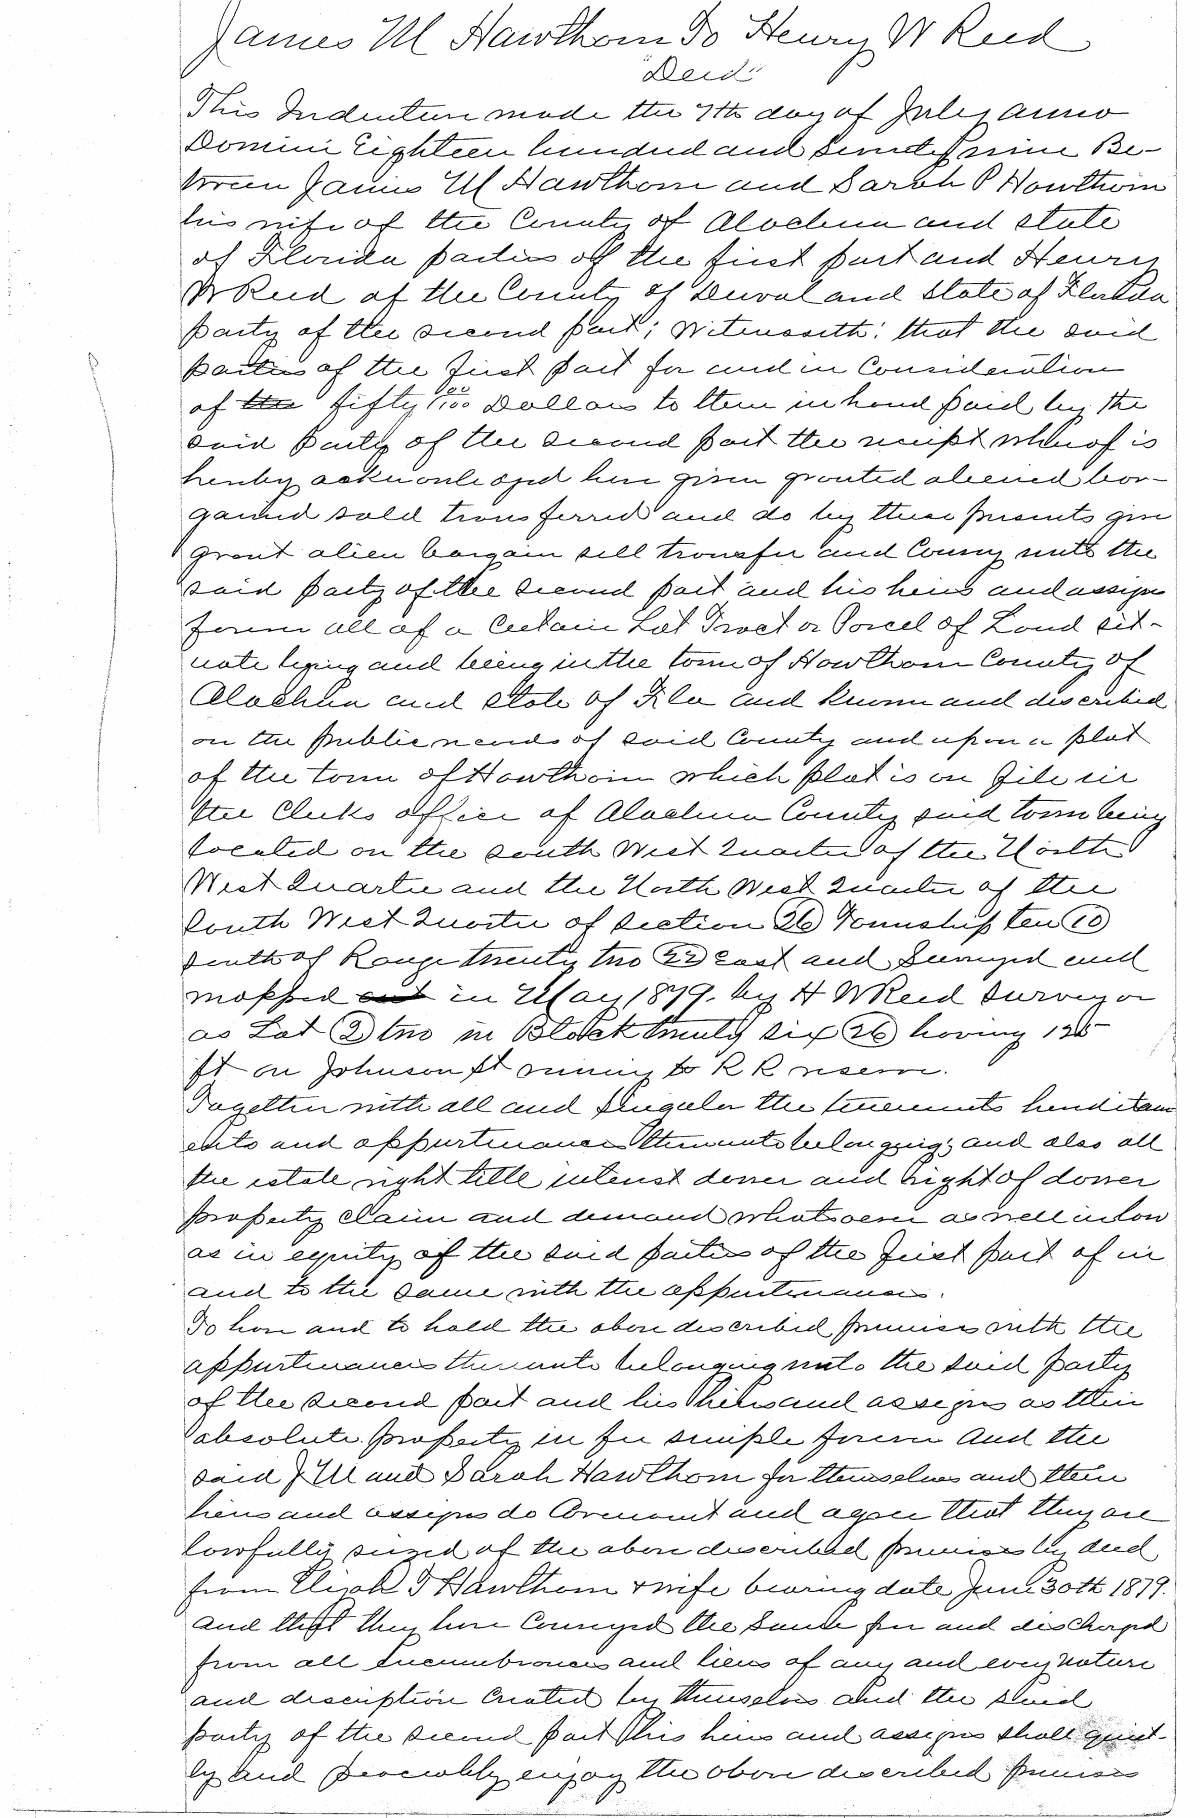 James M Hawthorn To Henry W Reed
"Deed"
This Indenture made the 7th day of July anno
Domini Eighteen hundred and Seventy nine Be-
tween James M Hawthorn and Sarah P Hawthorn
his wife of the County of Alachua and state
of Florida parties of the first part and Henry
W Reed of the County of Duval and State of Florida
party of the second part; Witnesseth: that the said
parties of the first part for and in Consideration
of the fifty 00/100 Dollars to them in hand paid by the
said Party of the second part the receipt whereof is
hereby acknowledged have given granted aliened bar-
gained sold transferred and do by these presents give
grant alien bargain sell transfer and Convey unto the
said party of the second part and his heirs and assigns
forever all of a Certain Lot Tract or Parcel of Land sit-
uate lying and being in the town of Hawthorn County of
Alachua and State of Fla and known and described
on the public records of said County and upon a plat
of the town of Hawthorn which plat is on file in
the Clerks office of Alachua County said town being
located on the south West Quarter of the North
West Quarter and the North West Quarter of the
South West Quarter of Section 26 Township ten 10
south of Range twenty two 22 East and Surveyed and
mapped out in May 1879. by H W Reed Surveyor
as Lot 2 two in Block twenty six 26 having 125
ft on Johnson St running to R R reserve.
Together with all and Singular the tenements heriditam
ents and appurtenances thereunto belonging; and also all
the estate right title interest dower and right of dower
property claim and demand whatsoever as well in law
as in equity of the said parties of the first part of in
and to the same with the appurtenances.
To have and to hold the above described premises with the
appurtenances thereunto belonging unto the said party
of the second part and his heirs and assigns as their
absolute property in fee simple forever And the
said J M and Sarah Hawthorn for themselves and their
heirs and assigns do Covenant and agree that they are
lawfully seized of the above described premises by deed
from Elijah T Hawthorn & wife bearing date June 30th 1879.
And that they have Conveyed the Same free and discharged
from all Encumbrances and liens of any and every Nature
and description Created by themselves and the said
party of the second part his heirs and assigns shall quiet-
ly and peaceably enjoy the above described premises